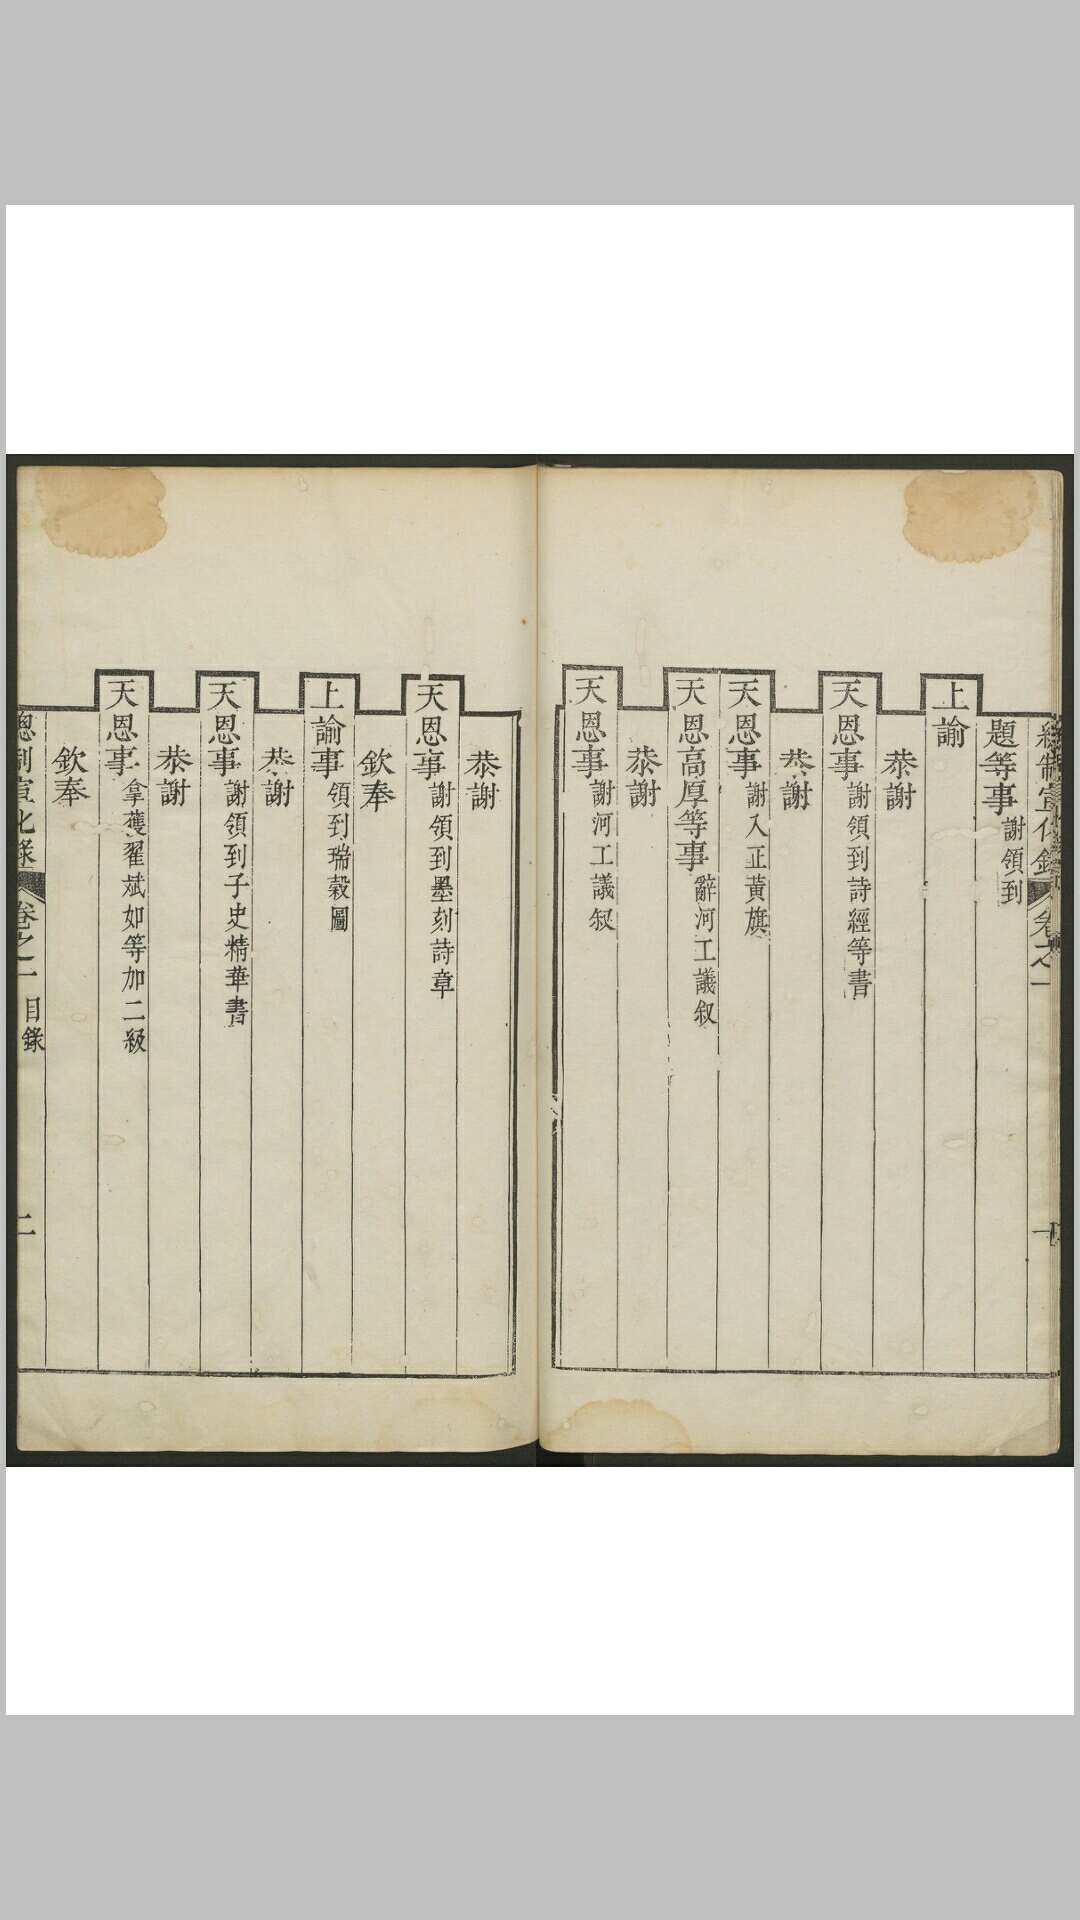 總制宣化錄 卷之一 一
題等事謝領到
上諭
恭謝
天恩事謝領到詩經等書
恭謝
天恩事謝入正黃旗
天恩高厚等事辭河工議叙
恭謝
天恩事謝河工議叙
恭謝
天恩事謝領到墨刻詩章
欽奉
上諭事領到瑞穀圖
恭謝
天恩事謝領到子史精華書
恭謝
天恩事拿獲翟斌如等加二級
欽奉
總制宣化錄 卷之一 目錄 二